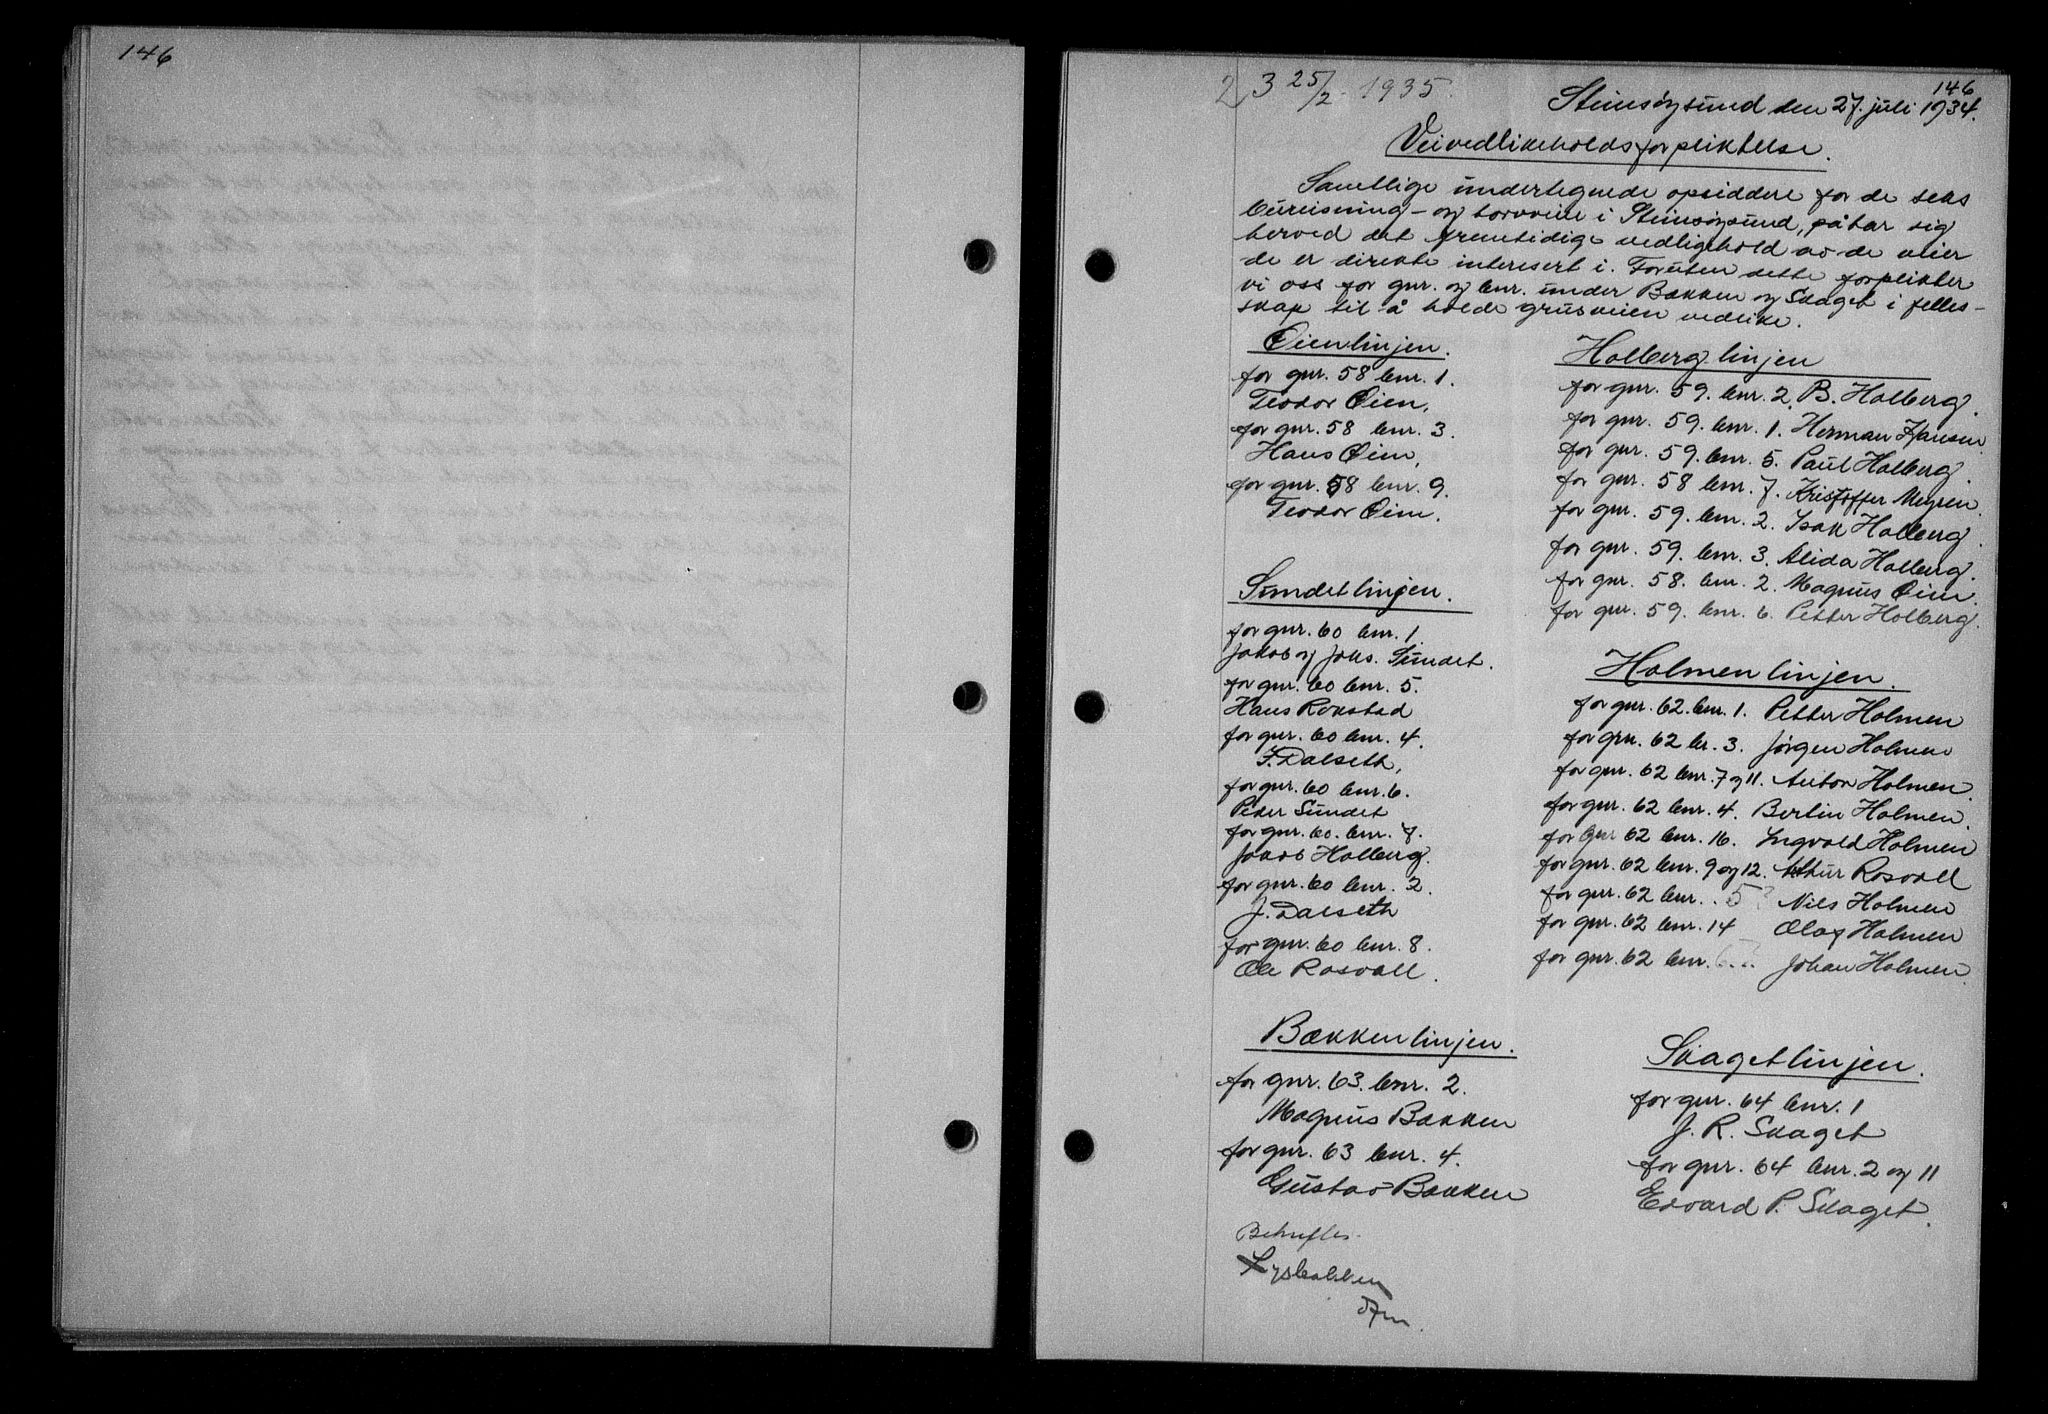 146
146
2 3 25/2 1935.
Steinsøysund den 27. juli 1934.
Veivedlikeholdsforpliktelse.
Samtlige undertegnede opsiddere for de seks
bureisning- og torvveie i Steinsøysund, påtar sig
herved det fremtidige vedligehold av de veier
de er direkte interesert i. Foruten dette forplikter
vi oss for gnr. og bnr. under Bækken og Skaget i felles-
skap til å holde grusveien vedlike.
Øienlinjen.
for gnr. 58 bnr. 1.
Teodor Øien,
for gnr. 58 bnr. 3.
Hans Øien,
for gnr. 58 bnr. 9.
Teodor Øien.
Sundetlinjen.
for gnr. 60 bnr. 1.
Jakob og Johs. Sundet.
for gnr. 60 bnr. 5.
Hans Rokstad
for gnr. 60 bnr. 4.
J. Dalseth,
for gnr. 60 bnr. 6.
Peder Sundet
for gnr. 60. bnr. 7.
Jakob Holberg.
for gnr. 60 bnr. 2.
J. Dalseth
for gnr. 60 bnr. 8.
Ole Rosvoll.
Bækkenlinjen.
for gnr. 63. bnr. 2.
Magnus Bækken
for gnr. 63 bnr. 4.
Gustav Bækken
Holberglinjen
for gnr. 59. bnr. 2. B. Holberg.
for gnr. 59. bnr. 1. Herman Hansen.
for gnr. 59. bnr. 5. Paul Holberg.
for gnr. 58 bnr. 7. Kristoffer Myren.
for gnr. 59. bnr. 2. Isak Holberg.
for gnr. 59. bnr. 3. Alida Holberg.
for gnr. 58. bnr. 2. Magnus Øien.
for gnr. 59. bnr. 6. Petter Holberg.
Holmenlinjen.
for gnr. 62. bnr. 1. Petter Holmen
for grn. 62 br. 3. Jørgen Holmen
for gnr. 62 bnr. 7 og 11. Anton Holmen.
for gnr. 62 bnr. 4. Bertin Holmen.
for gnr 62 bnr. 16. Ingvald Holmen
for gnr. 62 bnr. 9 og 12. Arthur Rosvoll
for gnr. 62 bnr. 5? Nils Holmen
for gnr. 62 bnr. 14 Olaf Holmen
for gnr. 62 bnr. 6?. Johan Holmen.
Skagetlinjen.
for gnr. 64 bnr. 1
J. R. Skaget
for gnr. 64 bnr. 2 og 11
Edvard P. Skaget.
Bekreftes.
Lysbakken